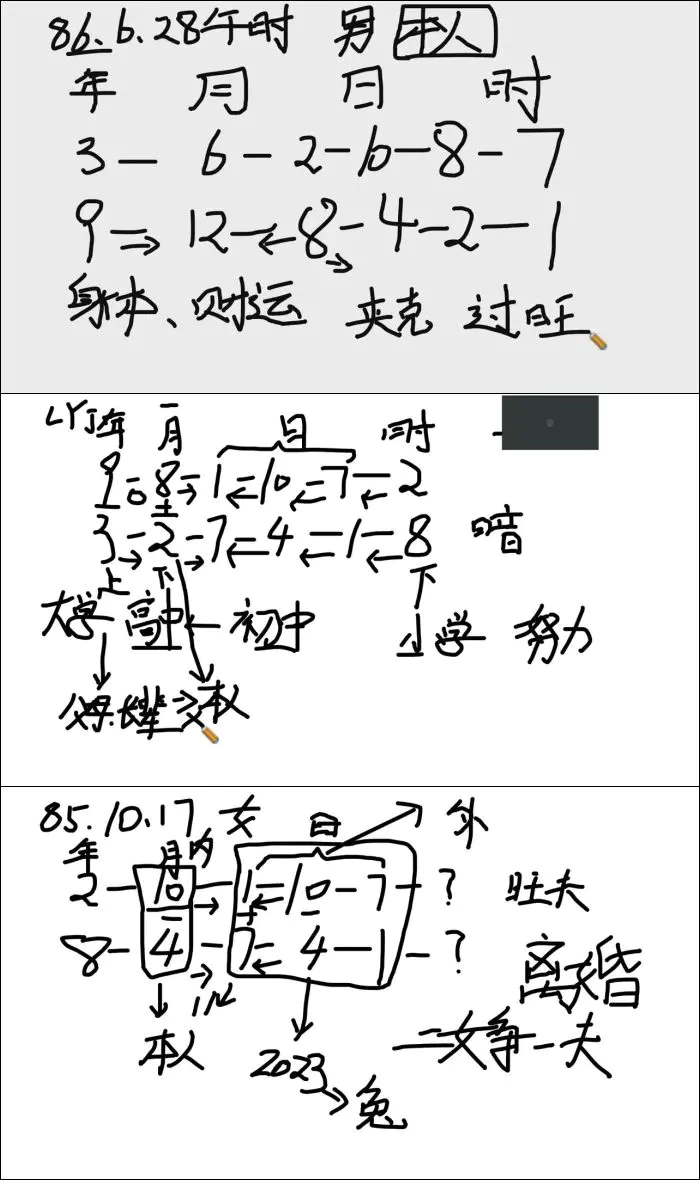 86.6.28午时 男 本人
年 月 日 时
3— 6-2-6-8-7
9→ 12←8-4-2-1
身体、财运 夹克 过旺
LYJ年 月 日 时
9=8→1←10←7←2
3→2→7←4←1←8 暗
上 下 下
大学 高中←初中 小学 努力
父母.长辈 本人
85.10.17 女 日 外
年 月内
2—10→1←10-7-? 旺夫
8-4-7←4-1-?
离婚
本人 2023 二女争一夫
兔